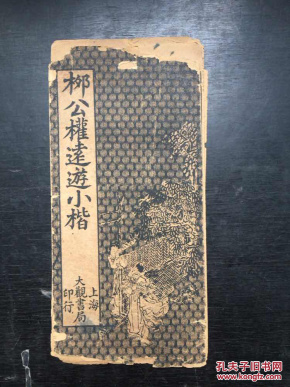 柳公權遠遊小楷
上海
大觀書局
印行
孔夫子旧书网